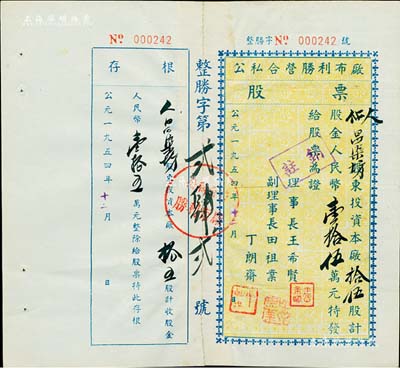 No 000242
整勝字 No 000242 號
公私合營勝利布廠
股票
人和昌染坊東投資本廠拾伍股計
股金人民幣壹拾伍萬元特發
給股票為證
註銷
理事長王希賢
副理事長田祖業
丁朗齋
公元一九五四年十二月 日
整勝字第貳肆貳號
存根
投資本廠拾五股計收股金
人民幣壹拾五萬元整除給股票持此存根
公元一九五四年十二月 日